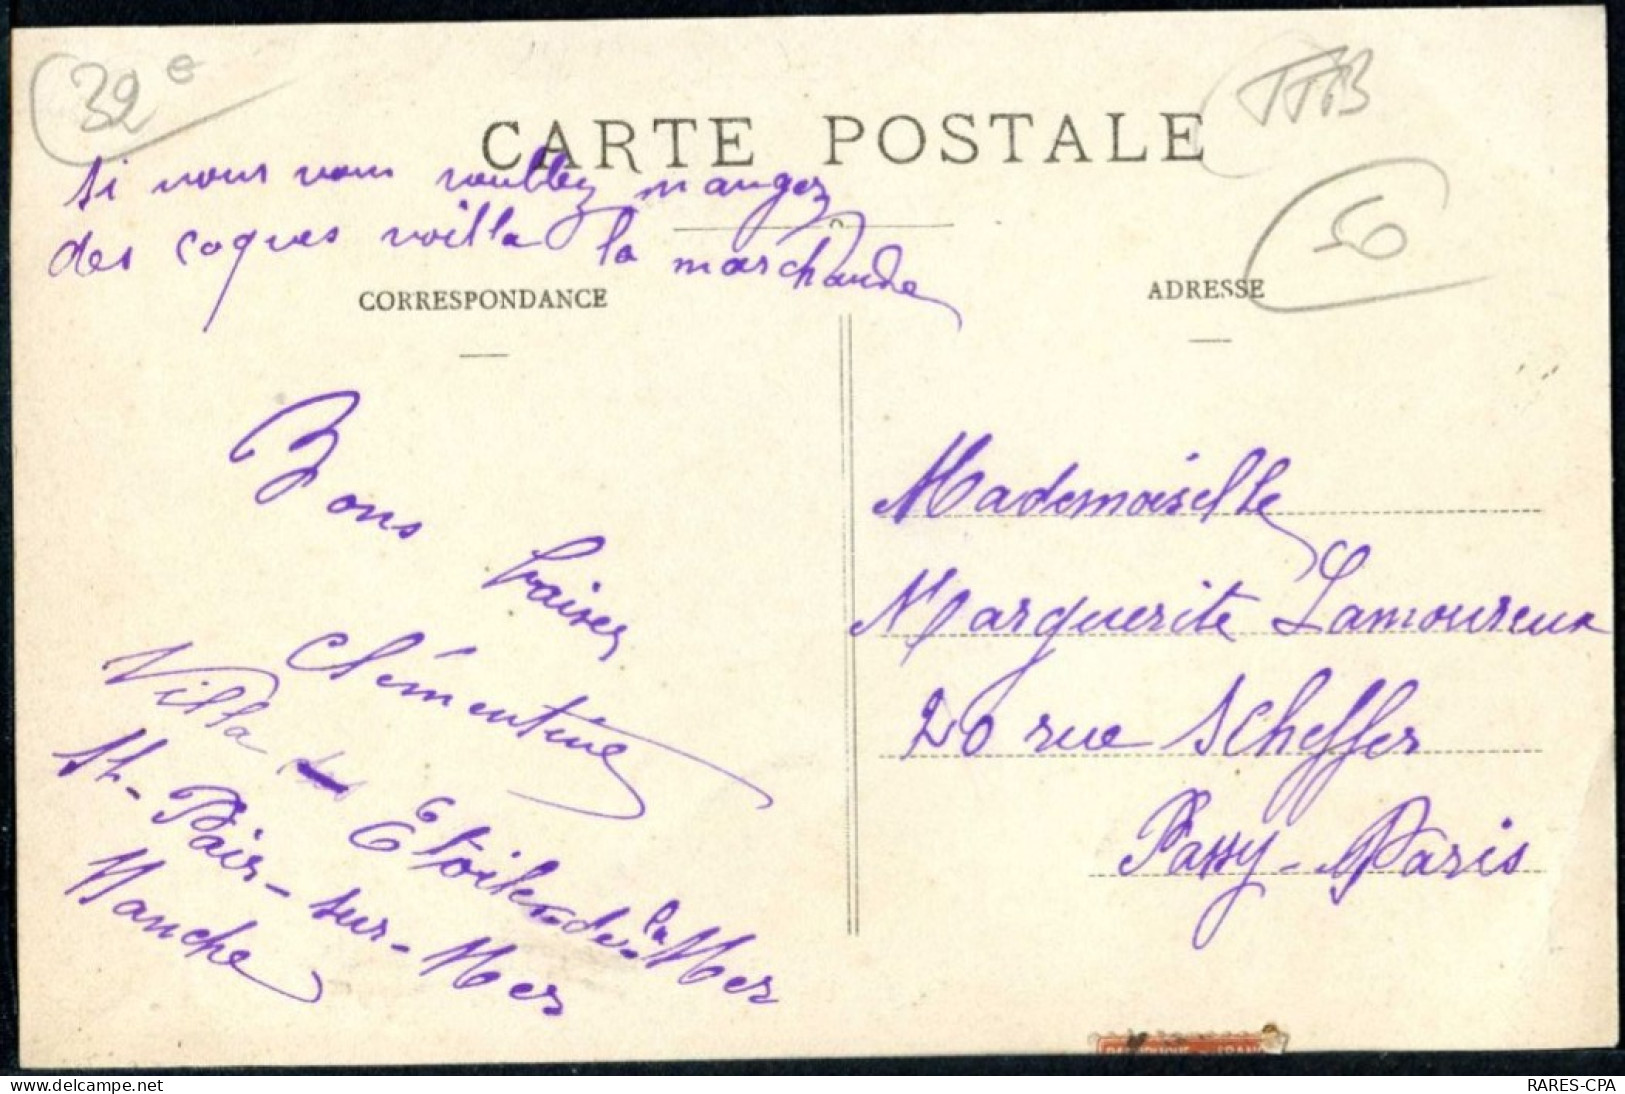 32e
TTB
CARTE POSTALE
50
si vous vous voullez mangez
des coques voilla la marchande
CORRESPONDANCE
ADRESSE
Bons baises
Clémentine
Villa Etoile-de-la-Mer
St-Pair-sur-Mer
Manche
Mademoiselle
Marguerite Lamoureux
20 rue Scheffer
Passy-Paris
delcampe.net
RARES-CPA